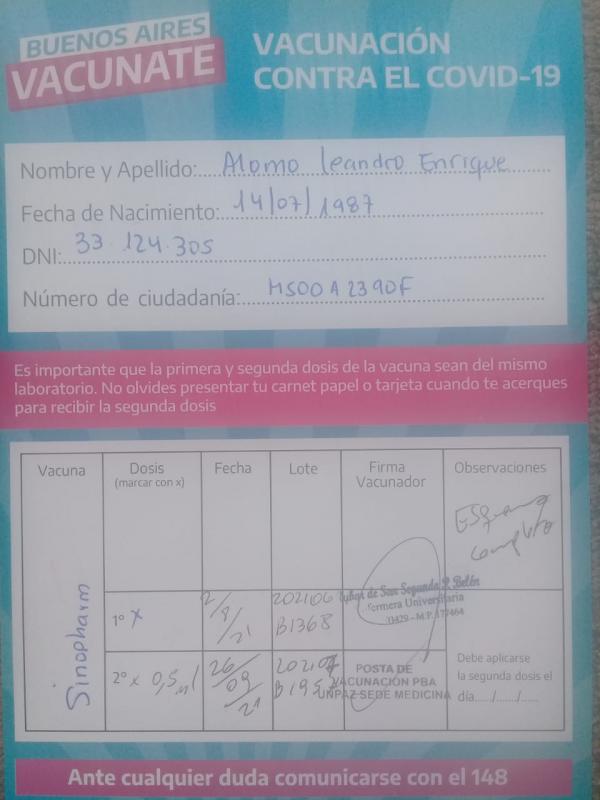 BUENOS AIRES
VACUNATE
VACUNACIÓN
CONTRA EL COVID-19
Nombre y Apellido: Alomo Leandro Enrique
Fecha de Nacimiento: 14/07/1987
DNI: 33.124.305
Número de ciudadanía: MS00A2390F
Es importante que la primera y segunda dosis de la vacuna sean del mismo
laboratorio. No olvides presentar tu carnet papel o tarjeta cuando te acerques
para recibir la segunda dosis
Vacuna Dosis Fecha Lote Firma Observaciones
(marcar con x) Vacunador
Esquema
completo
Sinopharm
1º x 2/8/21 202106
B1368
de San Segundo P. Belén
Universitaria
M.P.
2º x 0,5ml 26/09/21 202107
POSTA DE
VACUNACIÓN PBA
UNPAZ SEDE MEDICINA
Debe aplicarse
la segunda dosis el
día....../....../......
Ante cualquier duda comunicarse con el 148